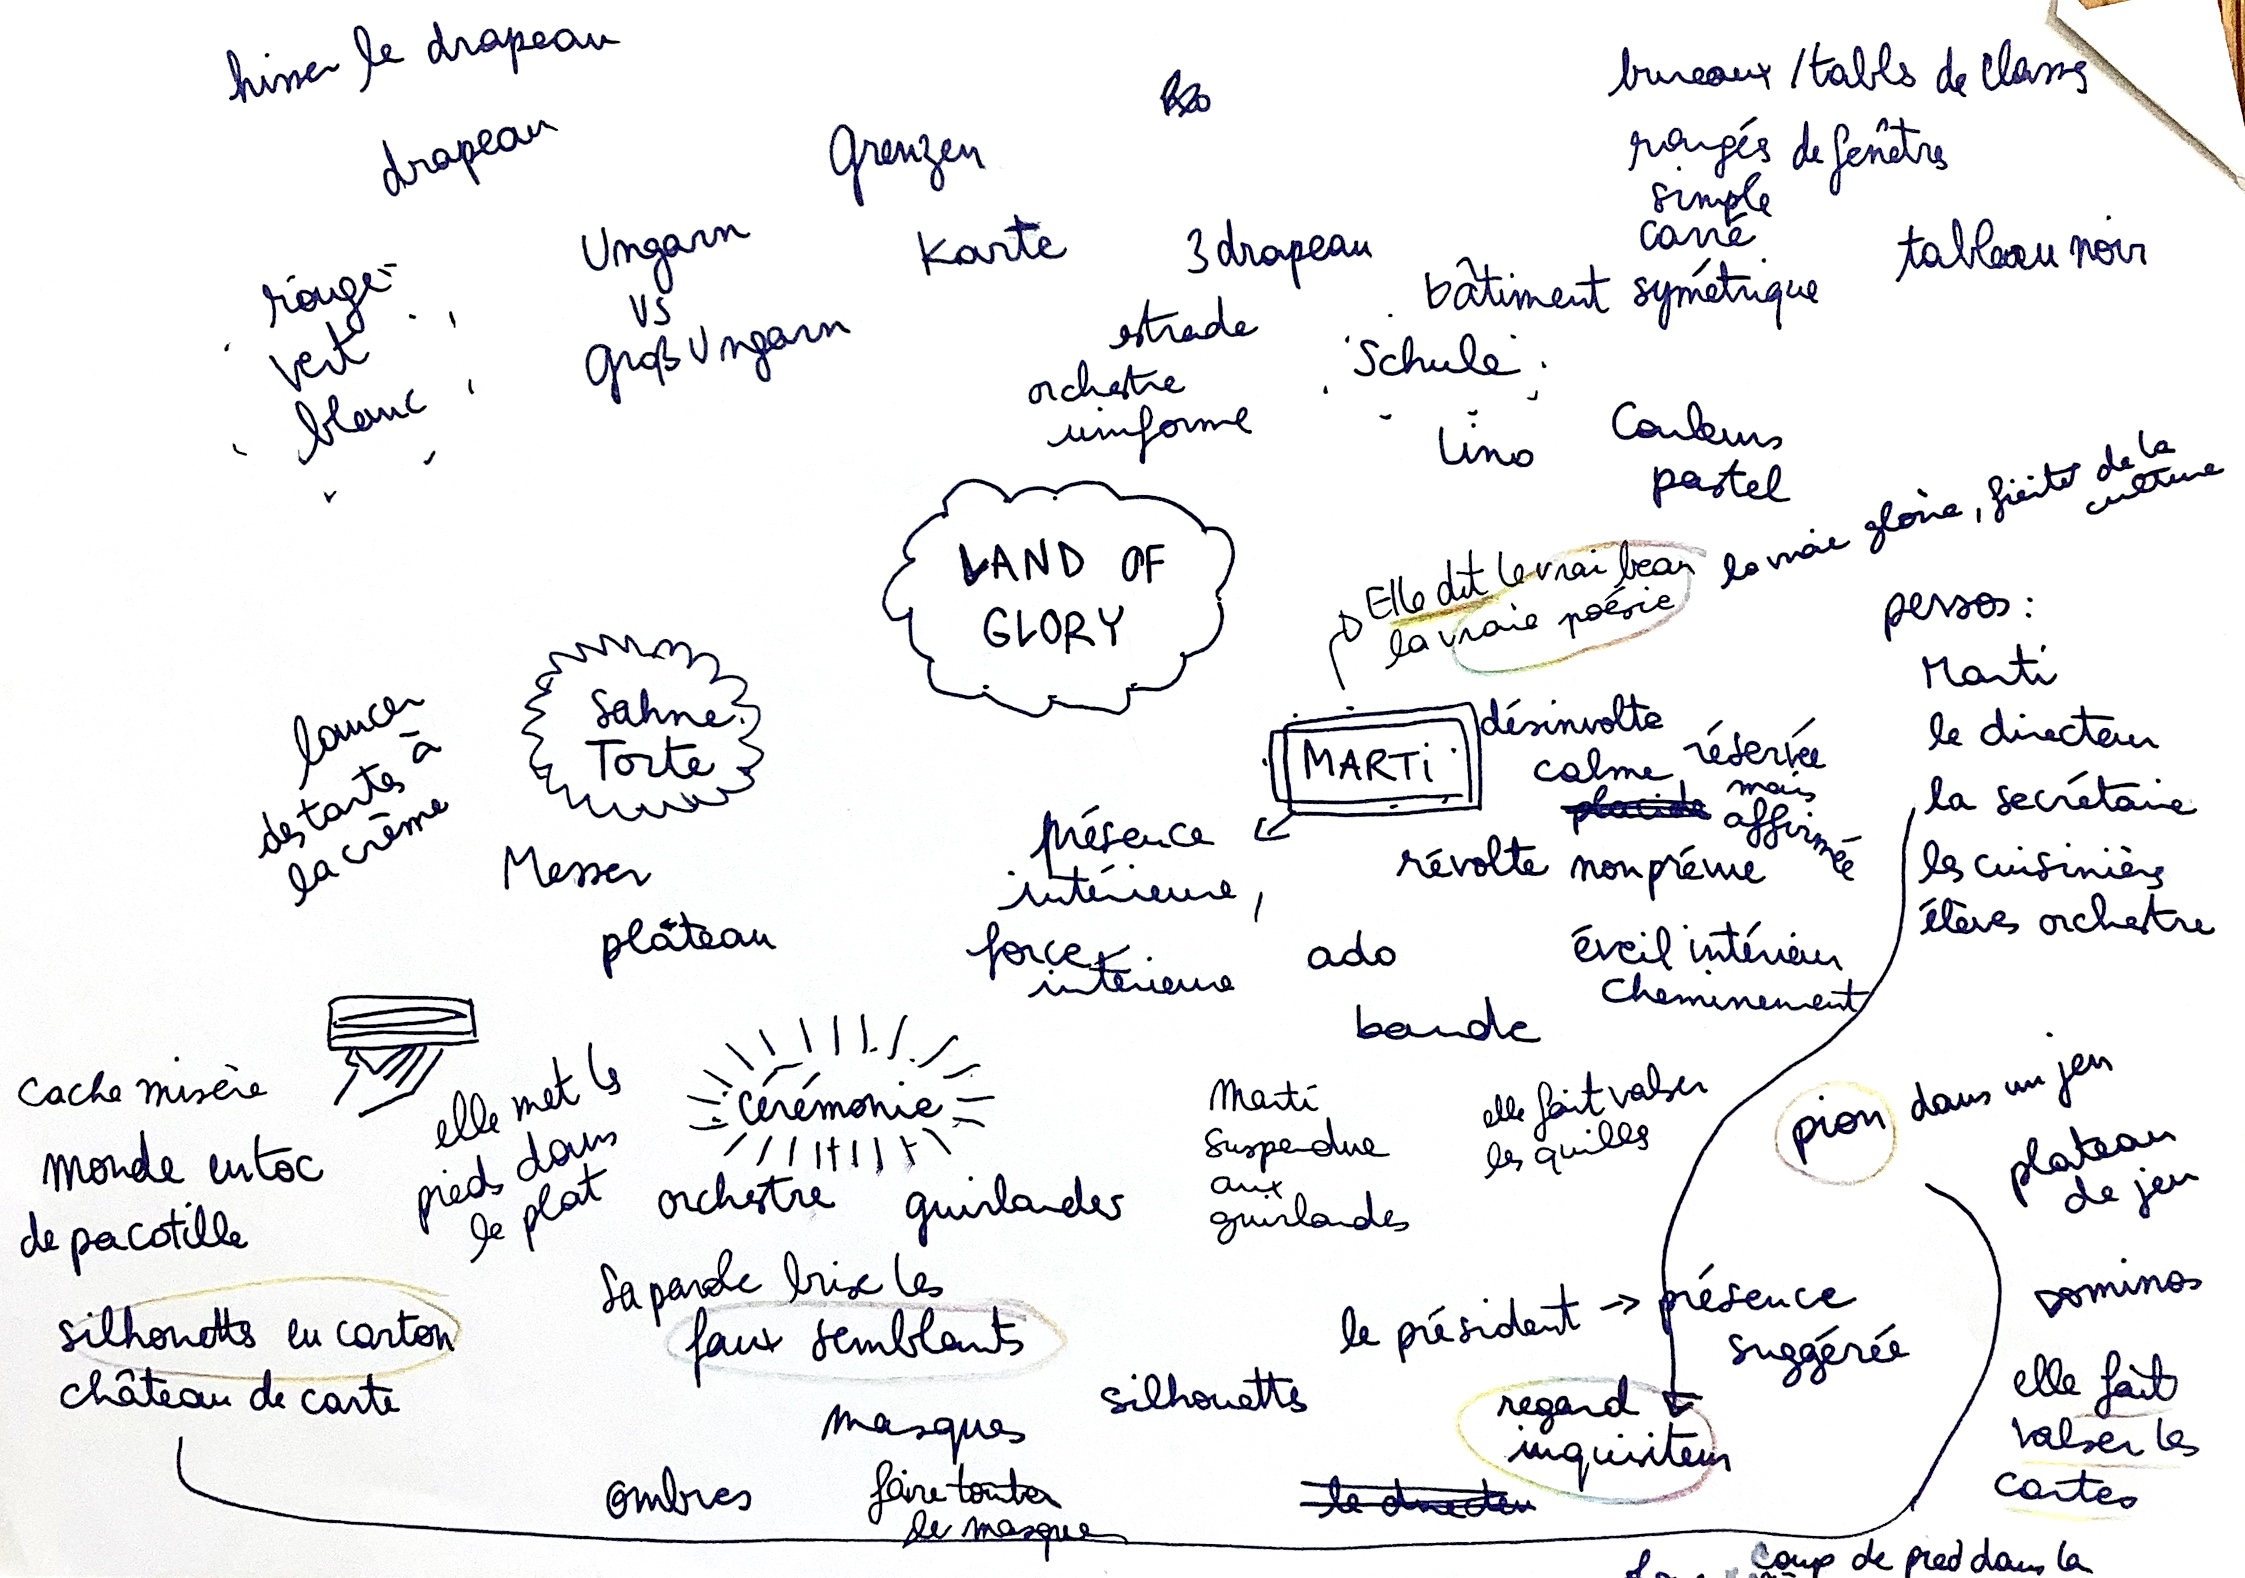 hisser le drapeau
drapeau
Grenzen
bureaux / tables de classes
rangés de fenêtres
simple
carré
bâtiment symétrique
tableau noir
rouge
vert
blanc
Ungarn
VS
Groß Ungarn
Karte
3 drapeau
estrade
orchestre
uniforme
Schule
Lino
Couleurs
pastel
LAND OF
GLORY
Elle dit le vrai beau
la vraie poésie
la vraie gloire, fierté de la
culture
persos :
Marti
le directeur
la secrétaire
les cuisinières
élèves orchestre
lancer
des tartes à
la crème
Sahne
Torte
Messer
plateau
MARTI
désinvolte
calme, réservée
placide mais
affirmée
révolte non prévue
présence
intérieure,
force
intérieure
ado
éveil intérieur
cheminement
bande
cache misère
monde en toc
de pacotille
silhouettes en carton
château de carte
elle met les
pieds dans
le plat
Cérémonie
orchestre
guirlandes
Marti
suspendue
aux
guirlandes
elle fait valser
les quilles
pion dans un jeu
plateau
de jeu
Dominos
elle fait
valser les
cartes
sa parole brise les
faux semblants
masques
ombres
faire tomber
le masque
silhouettes
le président → présence
suggérée
regard
inquisiteur
le directeur
coup de pied dans la